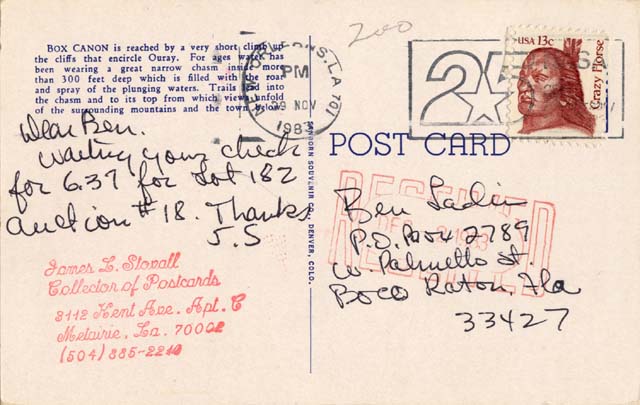 BOX CANON is reached by a very short climb up
the cliffs that encircle Ouray. For ages water has
been wearing a great narrow chasm inside more
than 300 feet deep which is filled with the roar
and spray of the plunging waters. Trails lead into
the chasm and to its top from which views unfold
of the surrounding mountains and the town below.
200
NEW ORLEANS, LA 701
PM
29 NOV
1983
25
USA 13c
Crazy Horse
Dear Ben.
Waiting your check
for 6.37 for Lot 182
Auction #18. Thanks
J.S
James L. Stovall
Collector of Postcards
3112 Kent Ave. Apt. C
Metairie, La. 70002
(504) 885-2210
SANBORN SOUVENIR CO., DENVER, COLO.
POST CARD
Ben Ladin
P.O. Box 2789
W. Palmetto St.
Boco Raton, Fla
33427